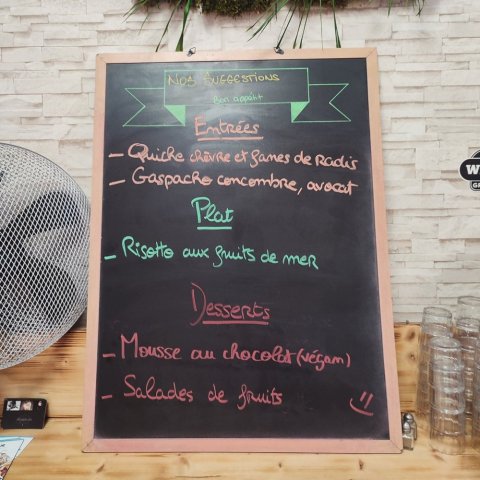 Nos suggestions
Bon appétit
Entrées
- Quiche chèvre et fanes de Radis
- Gaspacho concombre, avocat
Plat
- Risotto aux fruits de mer
Desserts
- Mousse au chocolat (végam)
- Salades de fruits